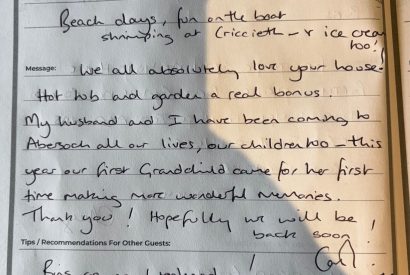 Beach days, fun on the boat
shrimping at Criccieth - & ice cream
too!
Message: We all absolutely love your house!
Hot tub and garden a real bonus.
My husband and I have been coming to
Abersoch all our lives, our children too - this
year our first Grandchild came for her first
time making more wonderful memories.
Thank you! Hopefully we will be
back soon!
Tips / Recommendations For Other Guests: